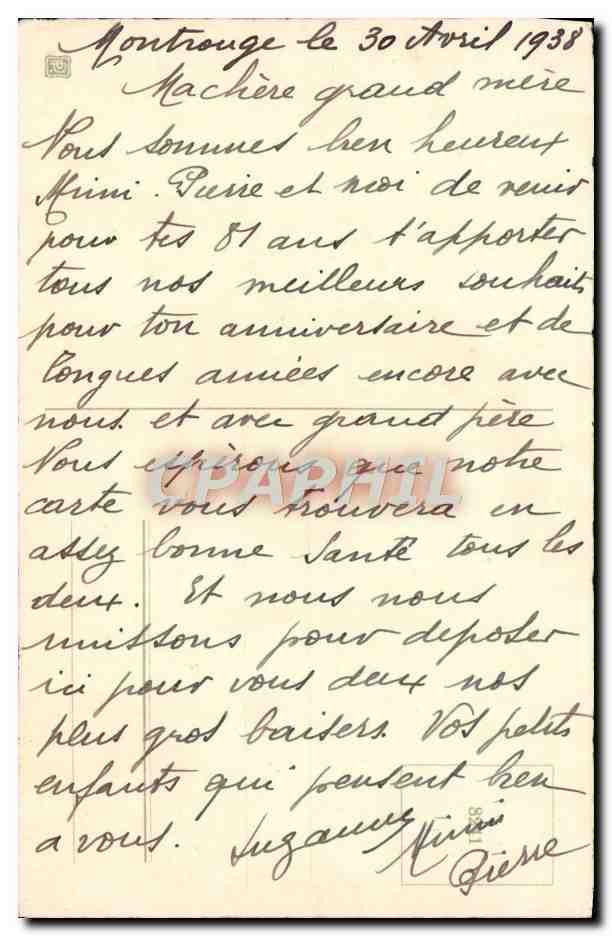 Montrouge le 30 Avril 1938
Machère grand mère
Nous sommes bien heureux
Mimi. Pierre et moi de venir
pour tes 81 ans t'apporter
tous nos meilleurs souhaits
pour ton anniversaire et de
longues années encore avec
nous. et avec grand père
Nous espérons que notre
carte vous trouvera en
assez bonne Santé tous les
deux. Et nous nous
unissons pour deposer
ici pour vous deux nos
plus gros baisers. Vos petits
enfants qui pensent bien
a vous. Suzanne Mimi
Pierre
CPAPHIL